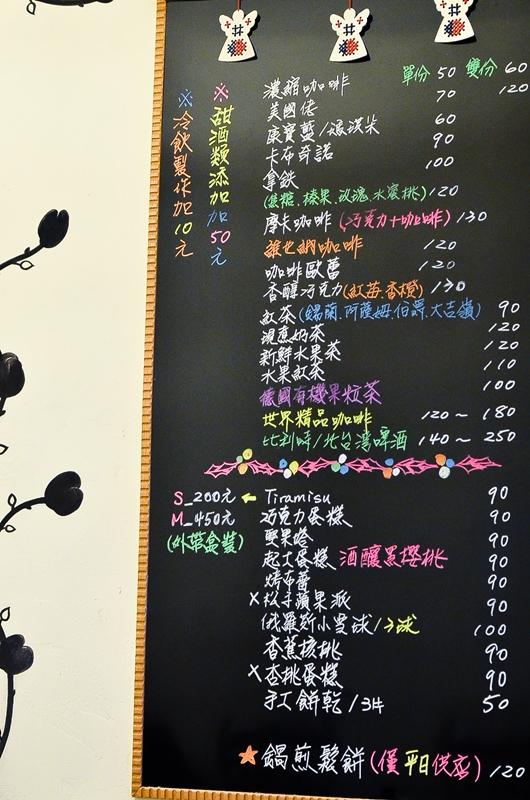 濃縮咖啡 單份 50 雙份 60
美國佬 70 120
康寶藍/瑪淇朵 60
卡布奇諾 90
拿鐵 100
(焦糖.榛果.玫瑰.水蜜桃) 120
摩卡咖啡 (巧克力+咖啡) 130
維也納咖啡 120
咖啡歐蕾 120
香醇巧克力(紅莓.香橙) 130
紅茶(錫蘭.阿薩姆.伯爵.大吉嶺) 90
現煮奶茶 120
新鮮水果茶 120
水果紅茶 110
德國有機果粒茶 100
世界精品咖啡 120~180
比利時/北台灣啤酒 140~250
※甜酒類添加加50元
※冷飲製作加10元
S_200元 ← Tiramisu 90
M_450元 巧克力蛋糕 90
(外帶盒裝) 堅果塔 90
起士蛋糕 酒釀黑櫻桃 90
烤布蕾 90
×松子蘋果派 90
俄羅斯小雪球/3球 100
香蕉核桃 90
×杏桃蛋糕 90
手工餅乾/3片 50
★鍋煎鬆餅(僅平日供應) 120